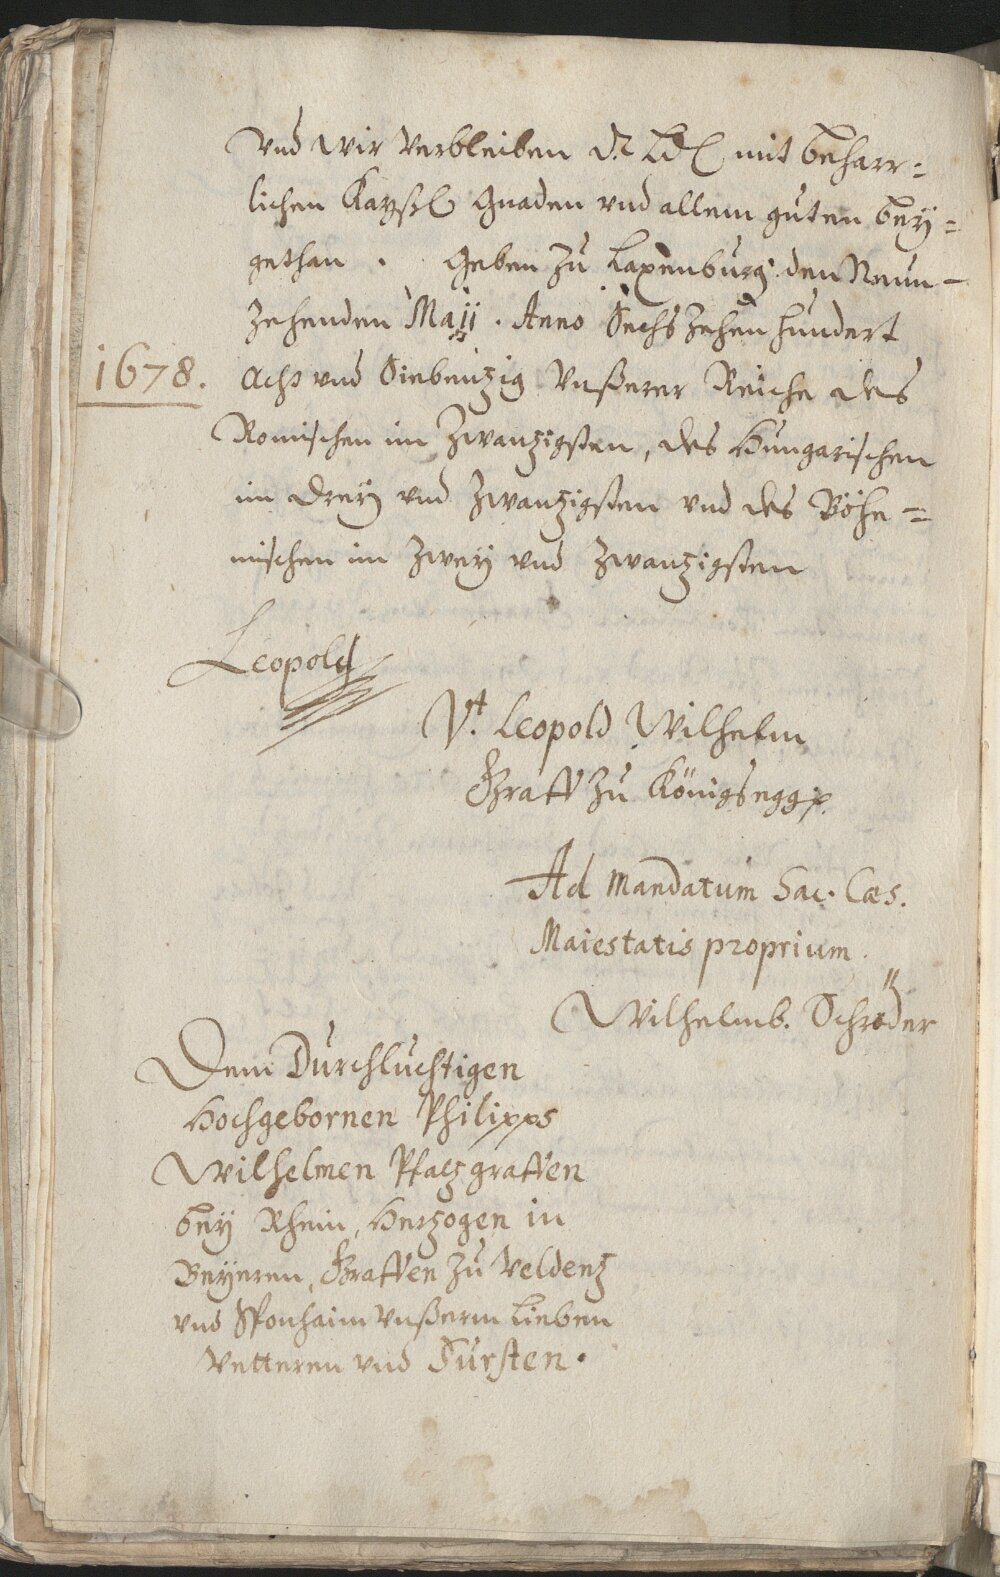 Und Wir Verbleiben Dr. Ld. mit beharr=
lichen Kayßl Gnaden und allem guten bey=
gethan . Geben zu Laxenburg den Neun-
zehenden Maji . Anno Sechszehen hundert
1678. Acht und Siebentzig Unßerer Reiche des
Romischen im Zwantzigsten, des Hungarischen
im Drey und Zwantzigsten und des Böhe=
mischen im Zwey und Zwantzigsten
Leopold
Vt. Leopold Wilhelm
Graff zu Königsegg p.
Ad Mandatum Sac. Cæs.
Maiestatis proprium.
Wilhelm b. Schröder
Dem Durchluchtigen
Hochgebornen Philipps
Wilhelmen Pfaltzgraffen
bey Rhein, Hertzogen in
Beyeren, Graffen zu Veldentz
und Sponhaim Unßerm lieben
Vetteren und Fürsten.